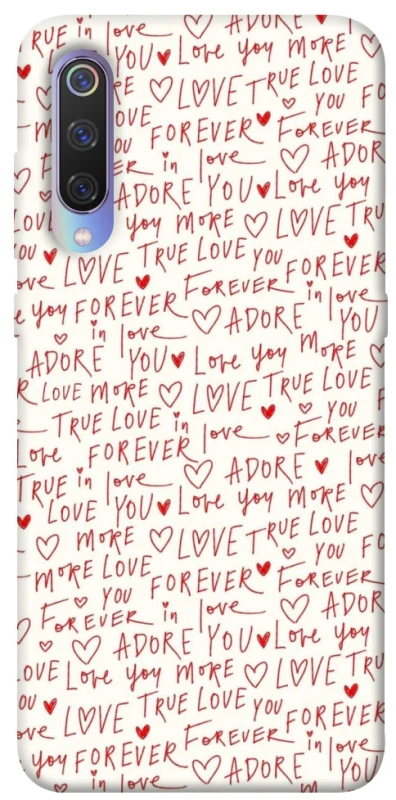 RUE in love YOU Love you MORE
LOVE TRUE LOVE
YOU
FOREVER FOREVER
in love ADOR
ADORE YOU Love you
you MORE LOVE TRU
LOVE TRUE LOVE YOU FOREVER
you FOREVER FOREVER in love
in love ADORE YOU
ADORE YOU Love you MORE
LOVE MORE LOVE TRUE LOVE
TRUE LOVE in love YOU
Love FOREVER FOREVER
TRUE in love ADORE love
LOVE YOU Love you MORE
MORE LOVE TRUE LOVE
MORE LOVE YOU
YOU FOREVER FOREVER
FOREVER in love ADOR
ADORE YOU Love you
OVE Love you MORE LOVE TRU
LOVE TRUE LOVE YOU FOREVER
you FOREVER FOREVER in love
in love ADORE YOU